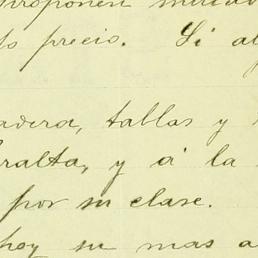 proponen
lo precio. Si al
adera, tallas y
eralta, y á la
por su clase.
hoy su mas a